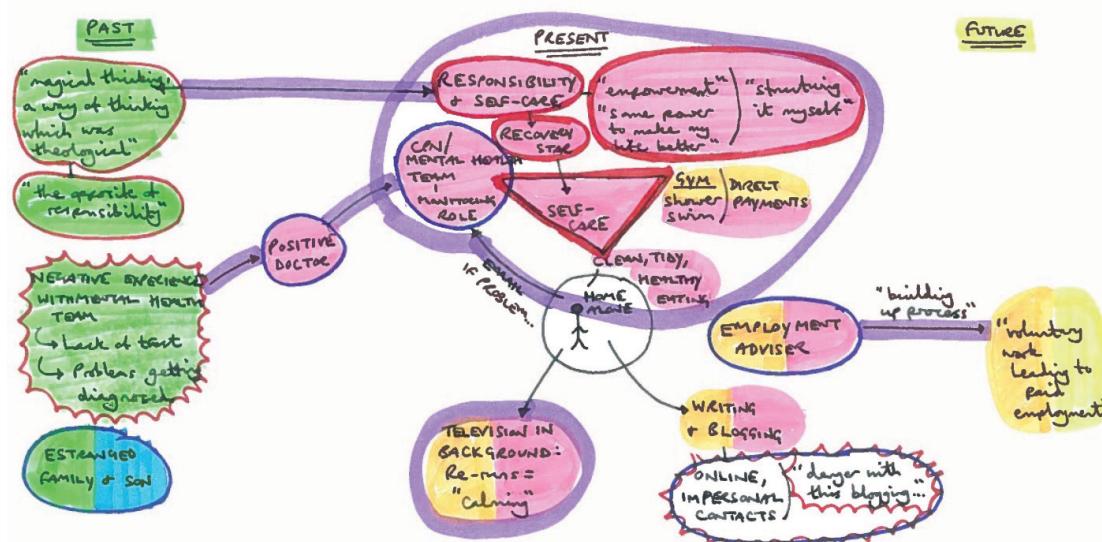 PAST
"magical thinking,
a way of thinking
which was
theological"
"the opposite of
responsibility"
NEGATIVE EXPERIENCE
WITH MENTAL HEALTH
TEAM
Lack of trust
Problems getting
diagnosed
ESTRANGED
FAMILY & SON
POSITIVE
DOCTOR
PRESENT
RESPONSIBILITY
& SELF-CARE
"empowerment"
"some power
to make my
life better"
"structuring
it myself"
RECOVERY
STAR
CPN/
MENTAL HEALTH
TEAM
MONITORING
ROLE
SELF-
CARE
GYM
shower
swim
DIRECT
PAYMENTS
CLEAN, TIDY,
HEALTHY
EATING
EMAIL
IF PROBLEM...
HOME
ALONE
TELEVISION IN
BACKGROUND:
Re-runs =
"calming"
WRITING
& BLOGGING
ONLINE,
IMPERSONAL
CONTACTS
"danger with
this blogging..."
EMPLOYMENT
ADVISER
"building
up process"
FUTURE
"voluntary
work
leading to
paid
employment"